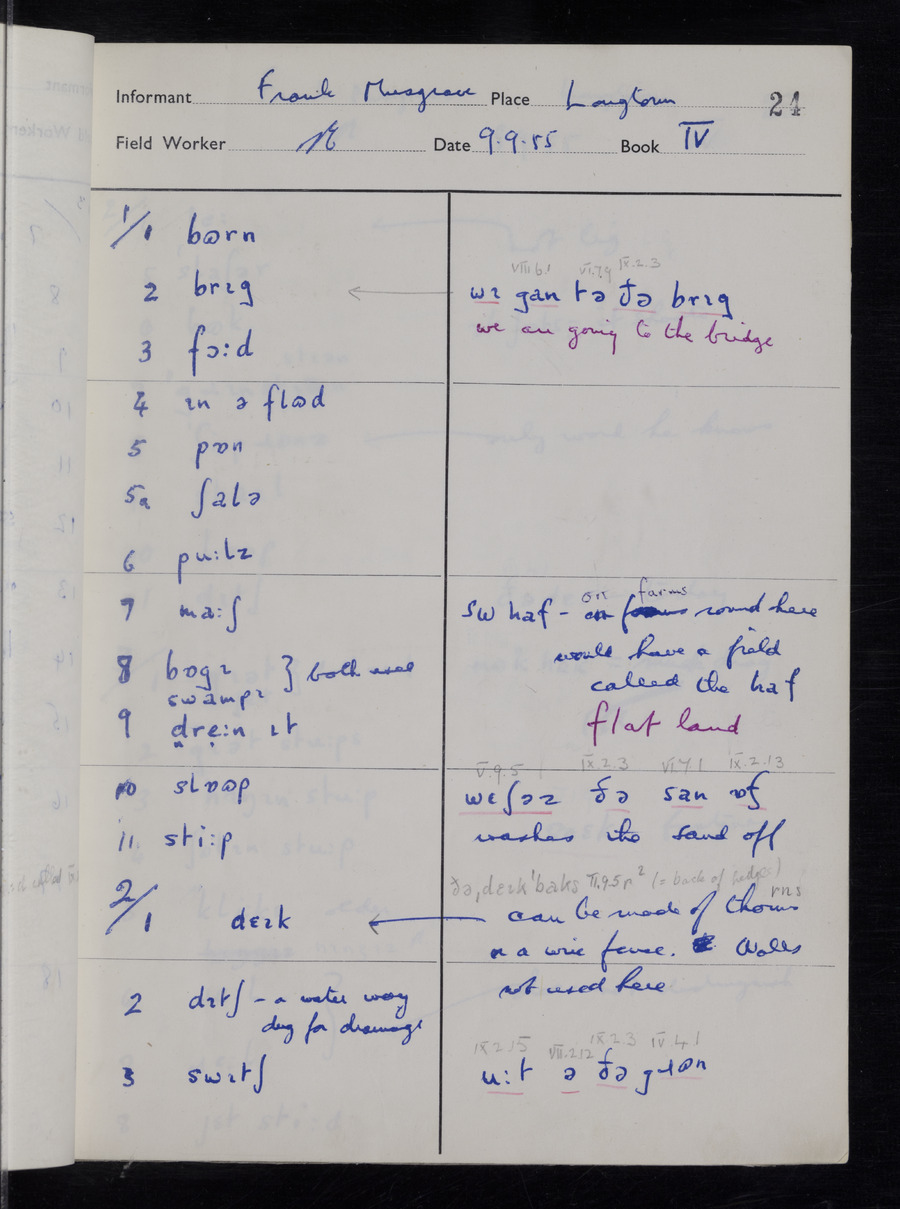 Informant Frank Musgrave Place Longtown 24
Field Worker Date 9.9.55 Book IV
1/1 bɷrn
VIII.6.1 VI.7.9 IX.2.3
2 brɪg wɪ gan tə ðə brɪg
3 fɔ:d we are going to the bridge
4 ɪn ə flɷd
5 pɒn
5a ʃalə
6 pu:lz
7 ma:ʃ sw haf - on farms round here
would have a field
8 bɒgɪ } both used called the haf
swampɪ
9 dre:n ɪt flat land
V.9.5 IX.2.3 VI.7.1 IX.2.13
10 slɒɷp wɛʃəz ðə san ɒf
11 sti:p washes the sand off
ðə, dɛɪk'baks (= back of hedges)
2/1 dɛɪk can be made of thorns
or a wire fence. Walls
not used here
2 dɪtʃ - a water way
dug for drainage
IX.2.15 VII.2.12 IX.2.3 IV.4.1
3 swɪtʃ u:t ə ðə